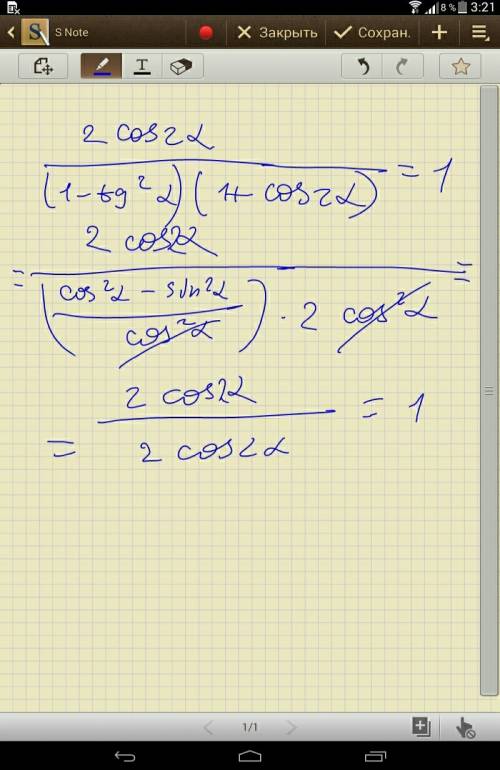 8 % 3:21
S Note Закрыть Сохран.
T
2 cos2α
(1-tg²α)(1+cos2α) = 1
2 cos2α
= =
(cos²α - sin²α
cos²α) · 2 cos²α
2 cos2α
= = 1
2 cos2α
1/1